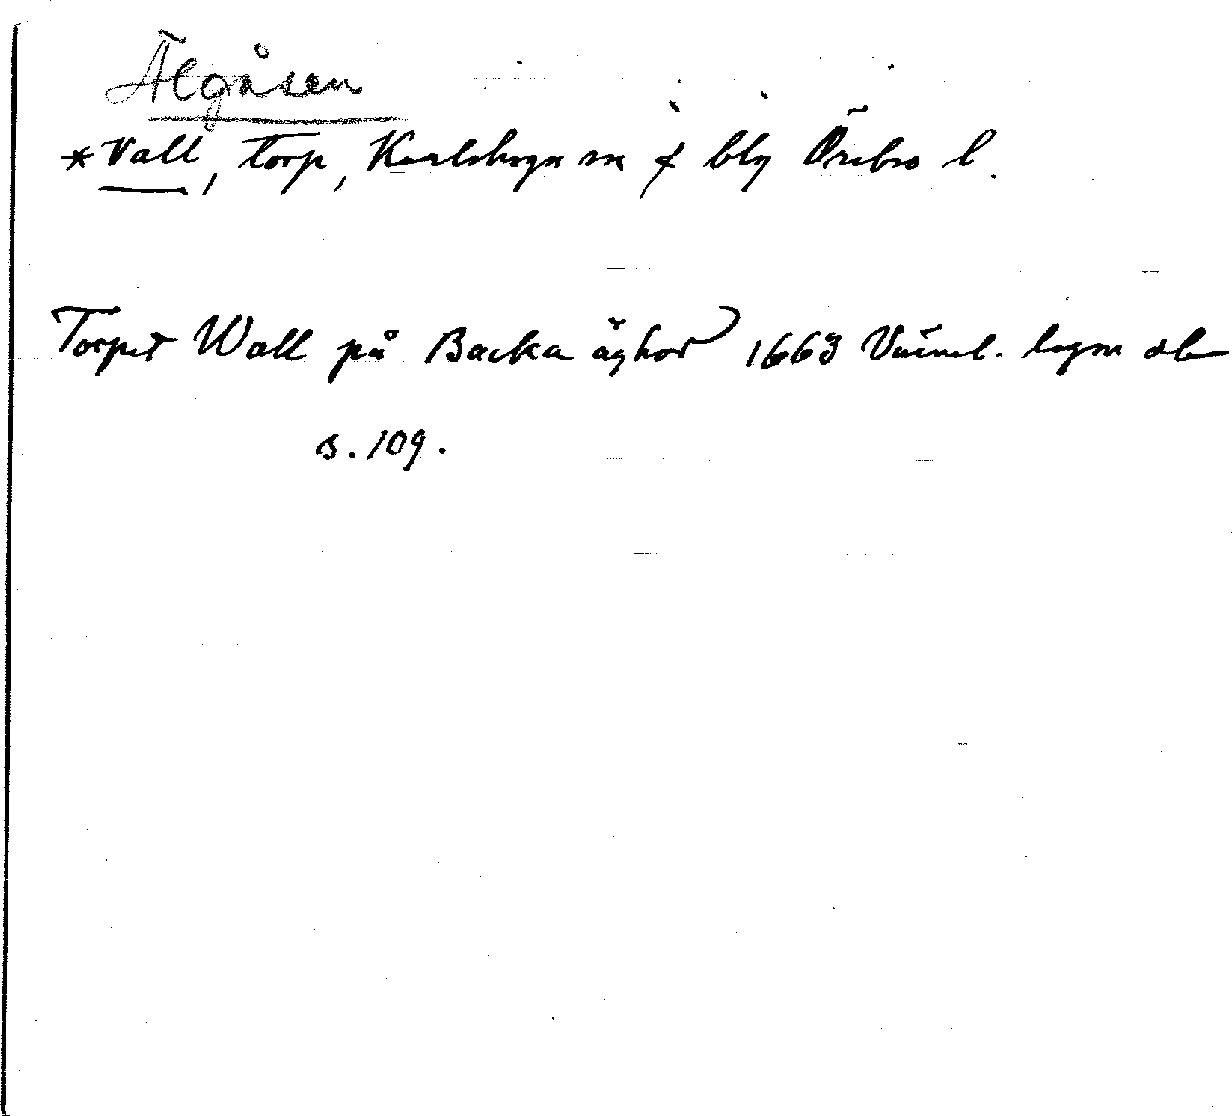 Älgåsen
* Vall, torp, Karlskoga sn f blg Örebro l.
Torpet Wall på Backa äghor 1663 Värml. lagm db
s. 109.